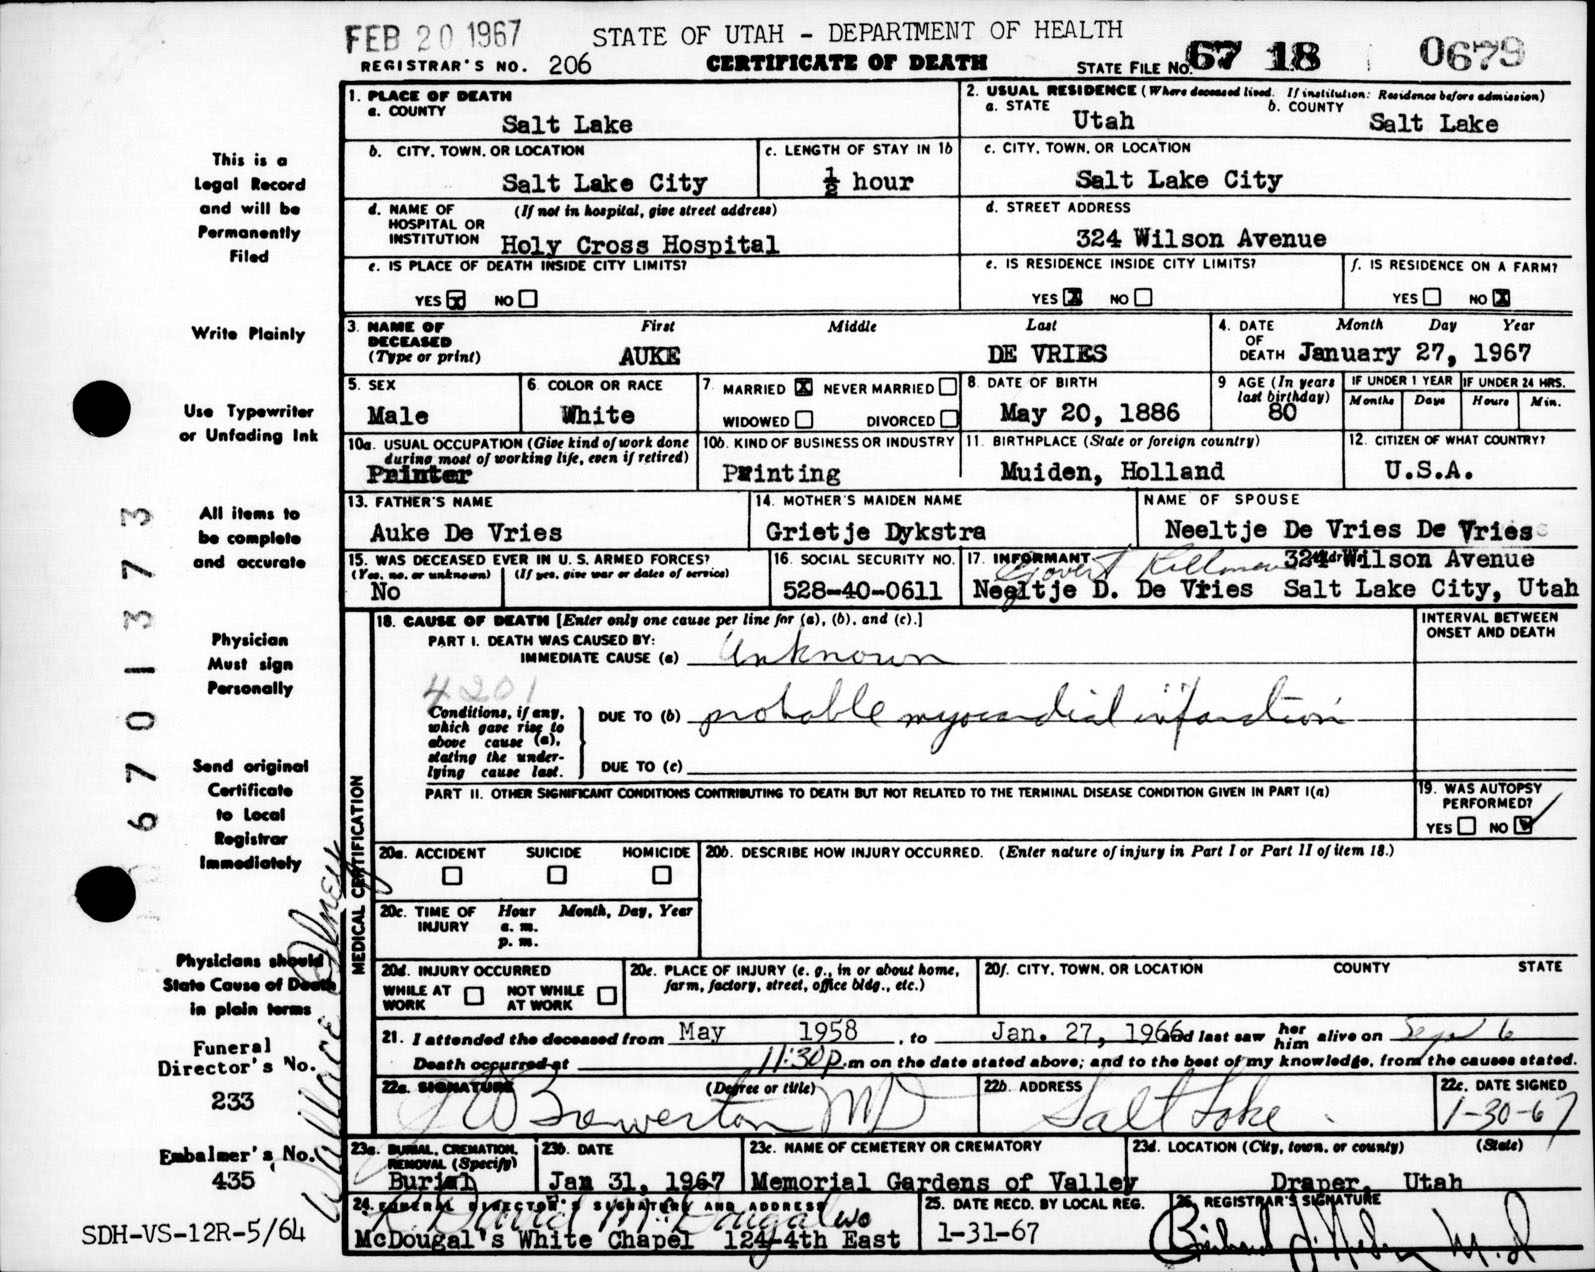 FEB 20 1967
STATE OF UTAH - DEPARTMENT OF HEALTH
REGISTRAR'S NO. 206
CERTIFICATE OF DEATH
STATE FILE NO. 67 18 0679
This is a
Legal Record
and will be
Permanently
Filed
Write Plainly
Use Typewriter
or Unfading Ink
All items to
be complete
and accurate
Physician
Must sign
Personally
Send original
Certificate
to Local
Registrar
Immediately
Physicians should
State Cause of Death
in plain terms
Funeral
Director's No.
233
Embalmer's No.
435
SDH-VS-12R-5/64
67 01373
Wallace
1. PLACE OF DEATH
a. COUNTY
Salt Lake
2. USUAL RESIDENCE (Where deceased lived. If institution: Residence before admission)
a. STATE Utah
b. COUNTY Salt Lake
b. CITY, TOWN, OR LOCATION
Salt Lake City
c. LENGTH OF STAY IN 1b
½ hour
c. CITY, TOWN, OR LOCATION
Salt Lake City
d. NAME OF HOSPITAL OR INSTITUTION (If not in hospital, give street address)
Holy Cross Hospital
d. STREET ADDRESS
324 Wilson Avenue
e. IS PLACE OF DEATH INSIDE CITY LIMITS?
YES X NO
e. IS RESIDENCE INSIDE CITY LIMITS?
YES X NO
f. IS RESIDENCE ON A FARM?
YES NO X
3. NAME OF DECEASED (Type or print)
First Middle Last
AUKE DE VRIES
4. DATE OF DEATH Month Day Year
January 27, 1967
5. SEX
Male
6. COLOR OR RACE
White
7. MARRIED X NEVER MARRIED
WIDOWED DIVORCED
8. DATE OF BIRTH
May 20, 1886
9 AGE (In years last birthday)
80
IF UNDER 1 YEAR IF UNDER 24 HRS.
Months Days Hours Min.
10a. USUAL OCCUPATION (Give kind of work done during most of working life, even if retired)
Painter
10b. KIND OF BUSINESS OR INDUSTRY
Printing
11. BIRTHPLACE (State or foreign country)
Muiden, Holland
12. CITIZEN OF WHAT COUNTRY?
U.S.A.
13. FATHER'S NAME
Auke De Vries
14. MOTHER'S MAIDEN NAME
Grietje Dykstra
NAME OF SPOUSE
Neeltje De Vries De Vries
15. WAS DECEASED EVER IN U.S. ARMED FORCES?
(Yes, no, or unknown) (If yes, give war or dates of service)
No
16. SOCIAL SECURITY NO.
528-40-0611
17. INFORMANT 324 Wilson Avenue
Neeltje D. De Vries Salt Lake City, Utah
18. CAUSE OF DEATH [Enter only one cause per line for (a), (b), and (c).]
INTERVAL BETWEEN ONSET AND DEATH
PART I. DEATH WAS CAUSED BY:
IMMEDIATE CAUSE (a) Unknown
4201
Conditions, if any, which gave rise to above cause (a), stating the underlying cause last.
DUE TO (b) probable myocardial infarction
DUE TO (c)
PART II. OTHER SIGNIFICANT CONDITIONS CONTRIBUTING TO DEATH BUT NOT RELATED TO THE TERMINAL DISEASE CONDITION GIVEN IN PART I(a)
19. WAS AUTOPSY PERFORMED?
YES NO
MEDICAL CERTIFICATION
20a. ACCIDENT SUICIDE HOMICIDE
20b. DESCRIBE HOW INJURY OCCURRED. (Enter nature of injury in Part I or Part II of item 18.)
20c. TIME OF INJURY Hour Month, Day, Year
a. m.
p. m.
20d. INJURY OCCURRED
WHILE AT WORK NOT WHILE AT WORK
20e. PLACE OF INJURY (e. g., in or about home, farm, factory, street, office bldg., etc.)
20f. CITY, TOWN, OR LOCATION COUNTY STATE
21. I attended the deceased from May 1958, to Jan. 27, 1966 and last saw her him alive on
Death occurred at 11:30p.m on the date stated above; and to the best of my knowledge, from the causes stated.
22a. SIGNATURE (Degree or title)
Bowerton MD
22b. ADDRESS
Salt Lake
22c. DATE SIGNED
1-30-67
23a. BURIAL, CREMATION, REMOVAL (Specify)
Burial
23b. DATE
Jan 31, 1967
23c. NAME OF CEMETERY OR CREMATORY
Memorial Gardens of Valley
23d. LOCATION (City, town, or county) (State)
Draper, Utah
24. FUNERAL DIRECTOR'S SIGNATURE AND ADDRESS
R David McDougal
McDougal's White Chapel 124-4th East
25. DATE RECD. BY LOCAL REG.
1-31-67
26. REGISTRAR'S SIGNATURE